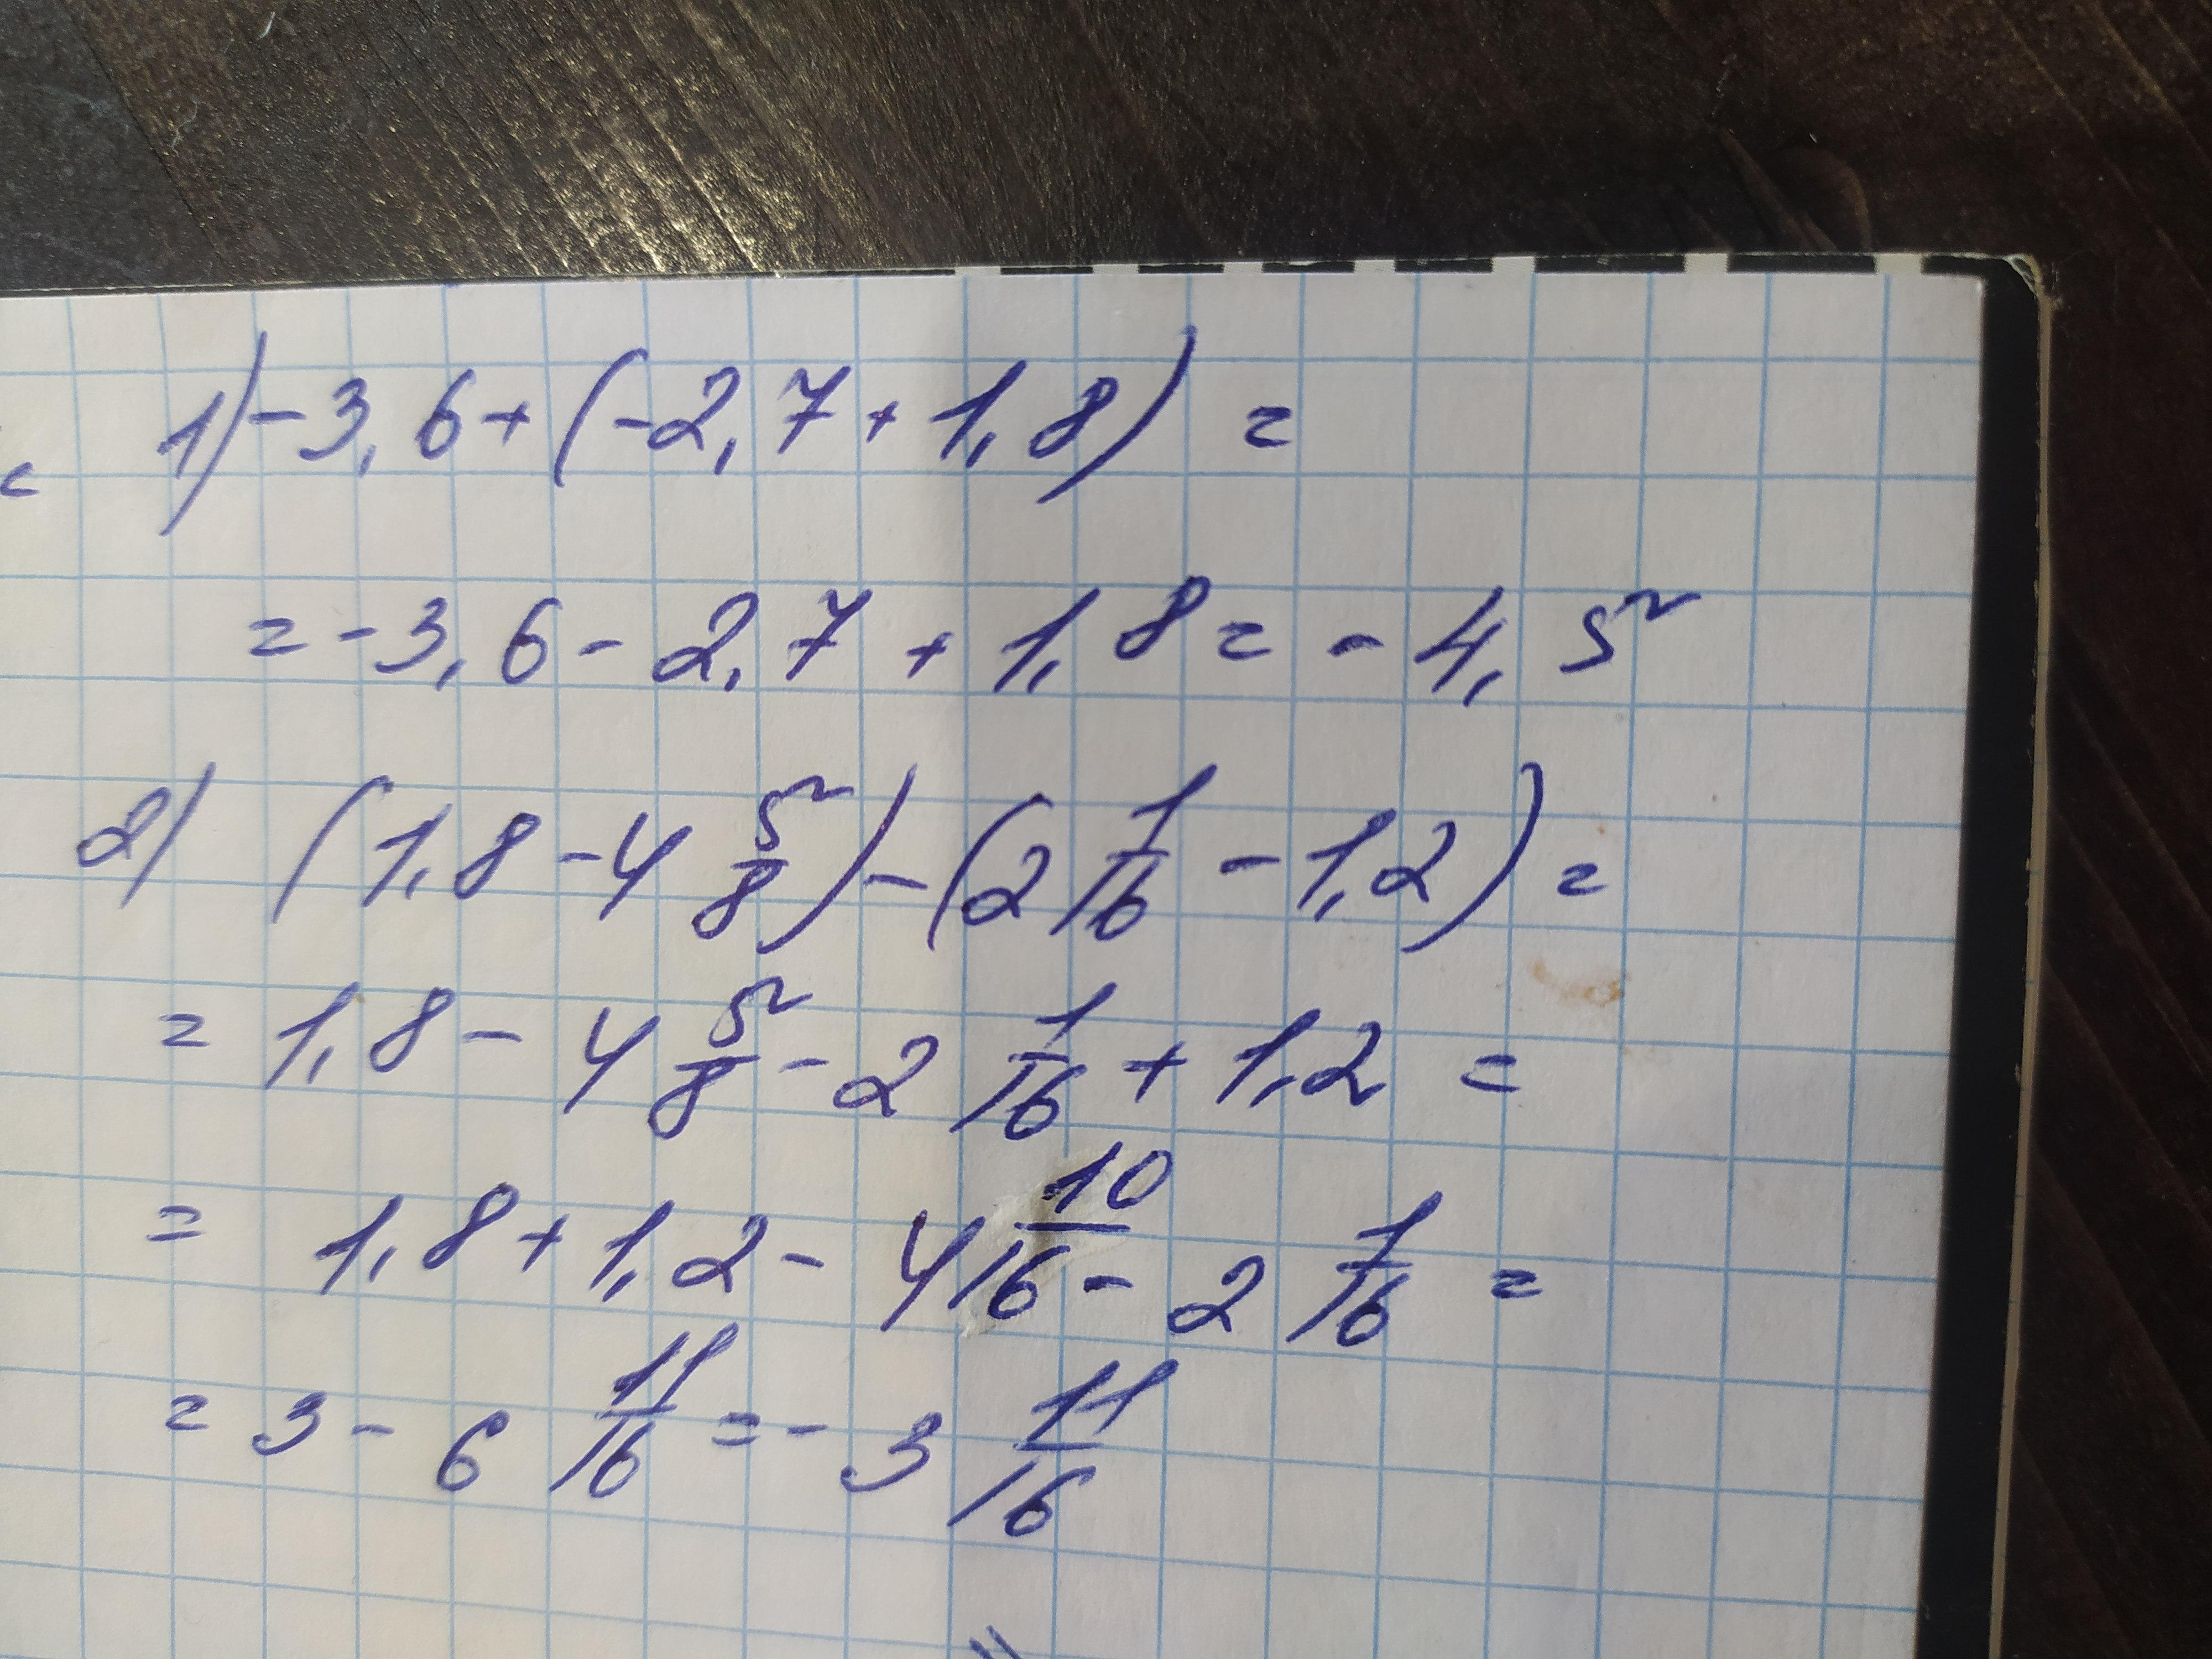 1) -3,6+(-2,7+1,8)=
=-3,6-2,7+1,8=-4,5
2) (1,8-4 5/8)-(2 1/16-1,2)=
=1,8-4 5/8-2 1/16+1,2=
=1,8+1,2-4 10/16-2 1/16=
=3-6 11/16=-3 11/16